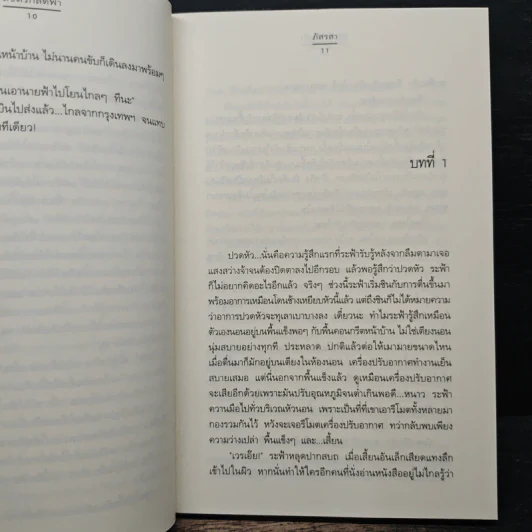 10
หน้าบ้าน ไม่นานคนขับก็เดินลงมาพร้อมๆ
นเอานายฟ้าไปโยนไกลๆ ทีนะ"
บินไปส่งแล้ว...ไกลจากกรุงเทพฯ จนแทบ
ทีเดียว!
ภัสรสา
11
บทที่ 1
ปวดหัว...นั่นคือความรู้สึกแรกที่ระฟ้ารับรู้หลังจากลืมตามาเจอ
แสงสว่างจ้าจนต้องปิดตาลงไปอีกรอบ แล้วพอรู้สึกว่าปวดหัว ระฟ้า
ก็ไม่อยากคิดอะไรอีกแล้ว จริงๆ ช่วงนี้ระฟ้าเริ่มชินกับการตื่นขึ้นมา
พร้อมอาการเหมือนโดนช้างเหยียบหัวนี้แล้ว แต่ถึงชินก็ไม่ได้หมายความ
ว่าอาการปวดหัวจะทุเลาเบาบางลง เดี๋ยวนะ ทำไมระฟ้ารู้สึกเหมือน
ตัวเองนอนอยู่บนพื้นแข็งพอๆ กับพื้นคอนกรีตหน้าบ้าน ไม่ใช่เตียงนอน
นุ่มสบายอย่างทุกที ประหลาด ปกติแล้วต่อให้เมามายขนาดไหน
เมื่อตื่นมาก็มักอยู่บนเตียงในห้องนอน เครื่องปรับอากาศทำงานเย็น
สบายเสมอ แต่นี่นอกจากพื้นแข็งแล้ว ดูเหมือนเครื่องปรับอากาศ
จะเสียอีกด้วยเพราะมันปรับอุณหภูมิจนต่ำเกินพอดี...หนาว ระฟ้า
ควานมือไปทั่วบริเวณหัวนอน เพราะเป็นที่ที่เขาเอารีโมตทั้งหลายมา
กองรวมกันไว้ หวังจะเจอรีโมตเครื่องปรับอากาศ ทว่ากลับพบเพียง
ความว่างเปล่า พื้นแข็งๆ และ...เสี้ยน
"เวรเอ๊ย!" ระฟ้าหลุดปากสบถ เมื่อเสี้ยนอันเล็กเสียดแทงลึก
เข้าไปในผิว หากนั่นทำให้ใครอีกคนที่นั่งอ่านหนังสืออยู่ไม่ไกลรู้ว่า